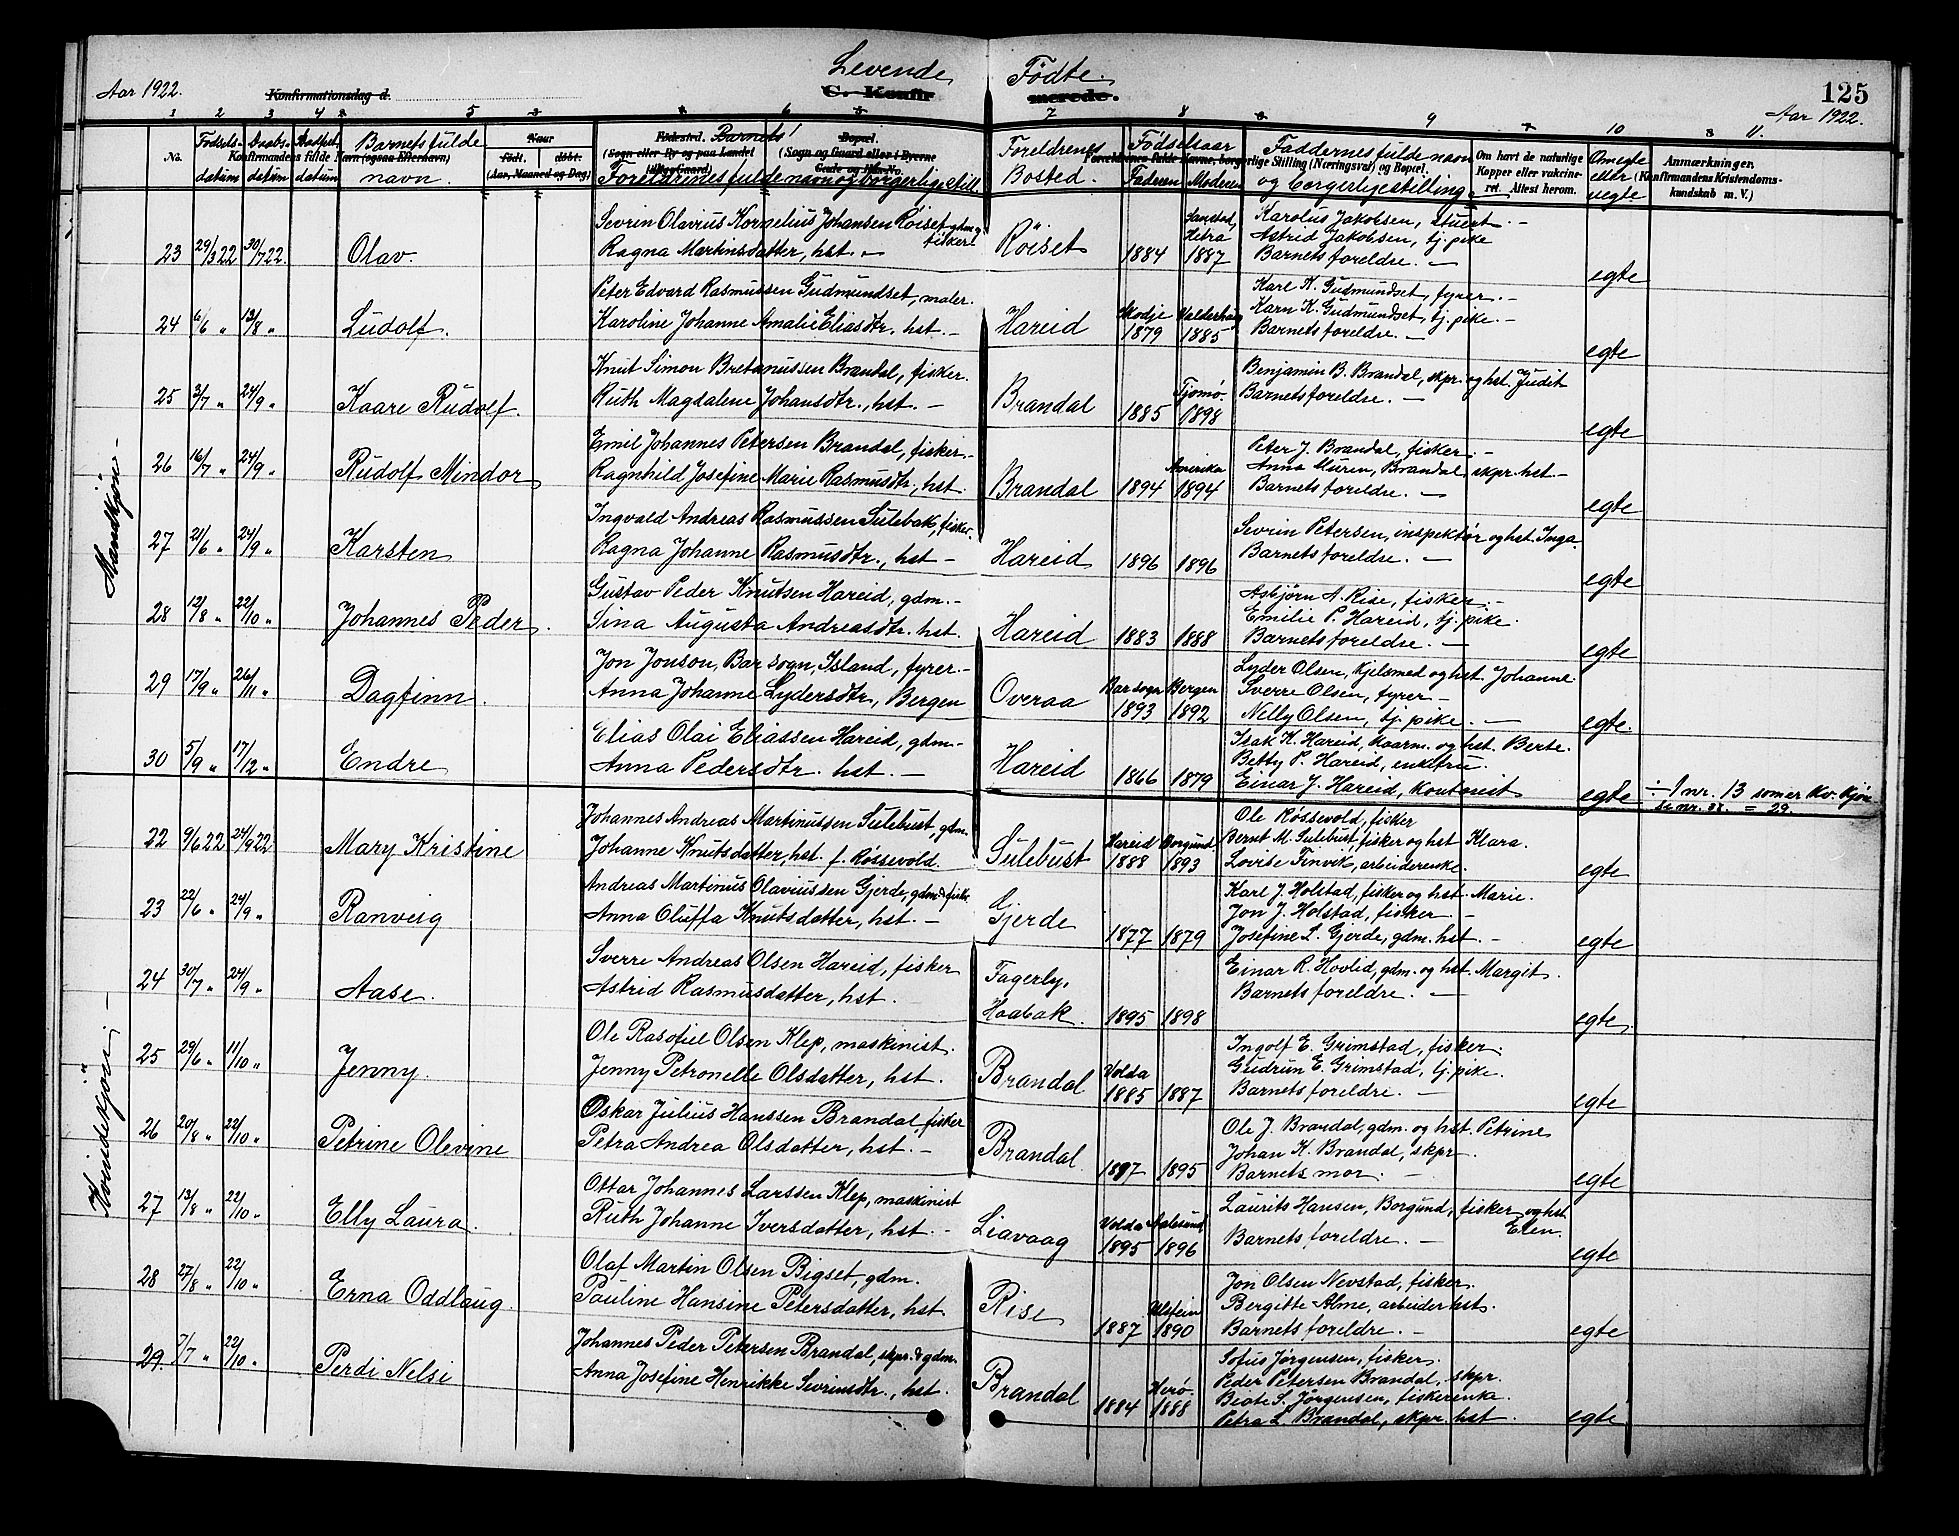 Levende Fødte.
C. Konfirmerede.
125
Aar 1922.
Konfirmationsdag d.
Aar 1922.
1 2 3 4 5 6 7 8 9 10 11.
No. Fødsels-datum Daabs-datum Barnets fulde navn. Barnets Forældrenes fulde navn og borgerlige still. Foreldrenes Bosted. Fødselsaar Faderen Moderen Faddernes fulde navn og borgerlige stilling. Om egte eller uegte Anmærkninger.
Konfirmandens fulde Navn (ogsaa Efternavn)
Naar født. døbt. (Aar, Maaned og Dag)
Fødested. (Sogn eller By og paa Landet tillige Gaard)
Bopæl. (Sogn og Gaard eller i Byerne Gade og Hus-No.
Om havt de naturlige Kopper eller vaccineret. Attest herom.
(Konfirmandens Kristendomskundskab m. V.)
Mandkjøn
Sevrin Olavius Kornelius Johansen Röiset, gdm. og fisker Karolus Jakobsen, stuert. -
23 29/3 22 30/7 22. Olav. Ragna Martinsdatter, hst. - Röiset 1884 Hitra 1887 Astrid Jakobsen, tj. pike
Barnets foreldre. - egte
Peter Edvard Rasmussen Gudmundset, maler. Karl K. Gudmundset, fyrer. -
24 6/6 " 13/8 " Ludolf. Karoline Johanne Amalie Eliasdtr. hst. - Hareid Skodje 1879 Valderhaug 1885 Karn K. Gudmundset, tj. pike. -
Barnets foreldre. - egte
Knut Simon Bretanussen Brandal, fisker. Benjamin B. Brandal, skpr. og hst. Judit
25 3/7 " 24/9 " Kaare Rudolf. Ruth Magdalene Johansdtr., hst. - Brandal 1885 Tjömö. 1898 Barnets foreldre. - egte
Emil Johannes Petersen Brandal, fisker. - Peter J. Brandal, fisker. -
26 16/7 " 24/9 " Rudolf Mindor Ragnhild Josefine Marie Rasmusdtr., hst. Brandal 1894 Amerika 1894 Anna Muren, Brandal, skpr. hst -
Barnets foreldre. - egte
Ingvald Andreas Rasmussen Sulebak, fisker. Sevrin Petersen, inspektør og hst. Inga.
27 21/6 " 24/9 " Karsten Ragna Johanne Rasmusdtr., hst - Hareid 1896 1896 Barnets foreldre. - egte
Gustav Peder Knutsen Hareid, gdm. - Asbjørn A. Rise, fisker. -
28 12/8 " 22/10 " Johannes Peder. Sina Augusta Andreasdtr. hst. Hareid 1883 1888 Emilie P. Hareid, tj. pike.
Barnets foreldre. - egte
Jon Jonson, Bar sogn, Island, fyrer. - Lyder Olsen, kjelsmed og hst. Johanne.
29 17/9 " 26/11 " Dagfinn. Anna Johanne Lydersdtr., Bergen Overaa Bar sogn 1893 Bergen 1892 Sverre Olsen, fyrer -
Nelly Olsen, tj. pike. - egte.
Elias Olai Eliassen Hareid, gdm. - Isak K. Hareid, kaarm. og hst. Berte.
30 5/9 " 17/12 " Endre Anna Pedersdtr. hst. - Hareid 1866 1879 Betty P. Hareid, enkefru.
Einar J. Hareid, kontorist egte ÷ 1 nr. 13 som er kv. kjøn
= 29.
Kvindekjön -
Johannes Andreas Martinussen Sulebust, gdm. Ole Røssevold, fisker
22 9/6 22 24/9 22 Mary Kristine Johanne Knutsdatter, hst. f. Røssevold. Sulebust Hareid 1888 Borgund 1893 Bernt M. Sulebust, fisker og hst Klara.
Lovise Finvik, arbeiderenke. egte
Andreas Martinus Olaviussen Gjerde, gdm. & fisk. Karl J. Holstad, fisker og hst. Marie.
23 22/6 " 24/9 " Ranveig Anna Oluffa Knutsdatter, hst. - Gjerde 1877 1879 Jon J. Holstad, fisker -
Josefine L. Gjerde, gdm. hst. - egte
Sverre Andreas Olsen Hareid, fisker Einar R. Hovlid, gdm. og hst. Margit.
24 30/7 " 24/9 " Aase. Astrid Rasmusdatter, hst. Fagerly, Haabak. 1895 1898 Barnets foreldre. - egte.
Ole Rasofiel Olsen Klep, maskinist. Ingolf E. Grimstad, fisker.
25 29/6 " 11/10 " Jenny. Jenny Petronelle Olsdatter, hst. Brandal Volda 1885 1887 Gudrun E. Grimstad, tj. pike.
Barnets foreldre. - egte
Oskar Julius Hanssen Brandal, fisker Ole J. Brandal, gdm. og hst. Petrine
26 20/8 " 22/10 " Petrine Olevine Petra Andrea Olsdatter, hst. - Brandal. 1897 1895 Johan K. Brandal, skpr.
Barnets mor. - egte
Ottar Johannes Larssen Klep, maskinist Laurits Hansen, Borgund, fisker og hst. Elen
27 13/8 " 22/10 " Elly Laura. Ruth Johanne Iversdatter, hst. - Liavaag Volda 1895 Aalesund 1896 Barnets foreldre. - egte
Olaf Martin Olsen Bigset, gdm. Jon Olsen Nevstad, fisker.
28 27/8 " 22/10 " Erna Oddlaug. Pauline Hansine Petersdatter, hst Rise 1887 Ulstein 1890 Bergitte Alme, arbeider hst.
Barnets foreldre. - egte
Johannes Peder Petersen Brandal, skpr. & gdm. Sofus Jørgensen, fisker.
29. 7/7 " 22/10 " Perdi Nelsi Anna Josefine Henrikke Sevrinsdtr., hst. Brandal 1884 Herø. 1888 Peder Petersen Brandal, skpr.
Beate S. Jørgensen, fiskerenka.
Petra L. Brandal, skpr. hst. egte